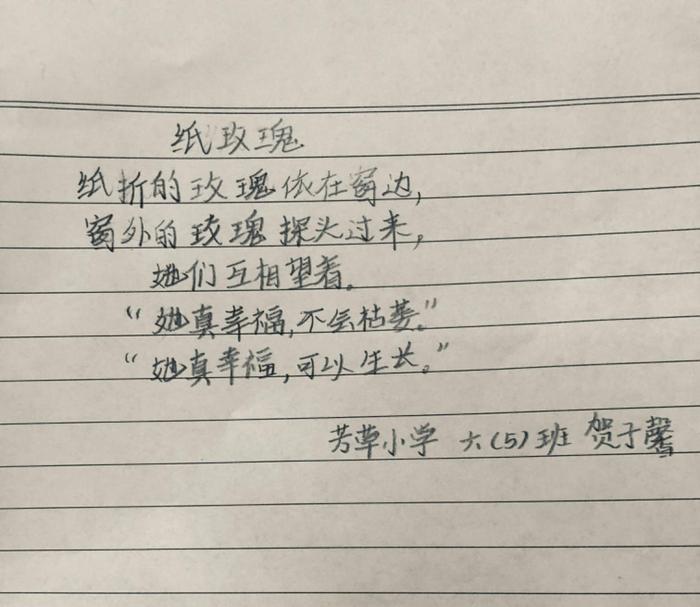 纸玫瑰
纸折的玫瑰依在窗边,
窗外的玫瑰探头过来,
她们互相望着。
“她真幸福,不会枯萎。”
“她真幸福,可以生长。”
芳草小学 六(5)班 贺子馨